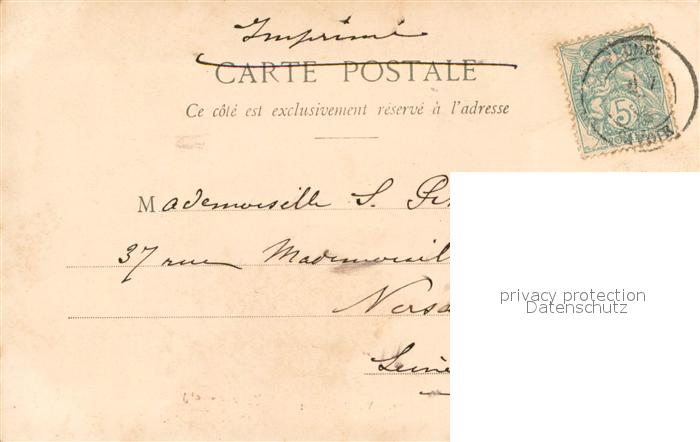 Imprimé
CARTE POSTALE
Ce côté est exclusivement réservé à l'adresse
5c
SAVOIE
Mademoiselle S.
37 rue Mademoisel
Versa
Seine
privacy protection
Datenschutz